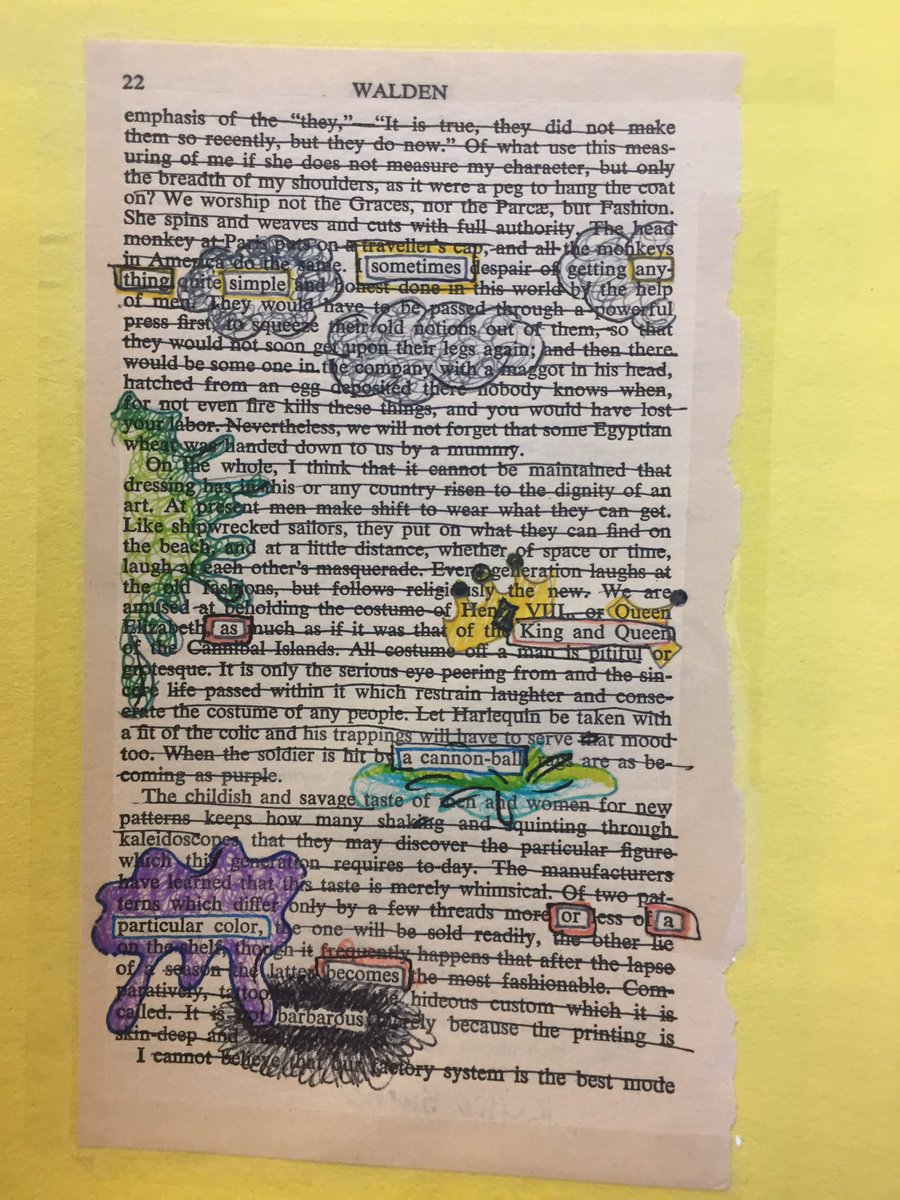 22 WALDEN
emphasis of the “they,”—“It is true, they did not make
them so recently, but they do now.” Of what use this meas-
uring of me if she does not measure my character, but only
the breadth of my shoulders, as it were a peg to hang the coat
on? We worship not the Graces, nor the Parcæ, but Fashion.
She spins and weaves and cuts with full authority. The head
monkey at Paris puts on a traveller's cap, and all the monkeys
in America do the same. I sometimes despair of getting any-
thing quite simple and honest done in this world by the help
of men. They would have to be passed through a powerful
press first, to squeeze their old notions out of them, so that
they would not soon get upon their legs again; and then there
would be some one in the company with a maggot in his head,
hatched from an egg deposited there nobody knows when,
for not even fire kills these things, and you would have lost
your labor. Nevertheless, we will not forget that some Egyptian
wheat was handed down to us by a mummy.
On the whole, I think that it cannot be maintained that
dressing has in this or any country risen to the dignity of an
art. At present men make shift to wear what they can get.
Like shipwrecked sailors, they put on what they can find on
the beach, and at a little distance, whether of space or time,
laugh at each other's masquerade. Every generation laughs at
the old fashions, but follows religiously the new. We are
amused at beholding the costume of Henry VIII., or Queen
Elizabeth, as much as if it was that of the King and Queen
of the Cannibal Islands. All costume off a man is pitiful or
grotesque. It is only the serious eye peering from and the sin-
cere life passed within it which restrain laughter and conse-
crate the costume of any people. Let Harlequin be taken with
a fit of the colic and his trappings will have to serve that mood
too. When the soldier is hit by a cannon-ball rags are as be-
coming as purple.
The childish and savage taste of men and women for new
patterns keeps how many shaking and squinting through
kaleidoscopes that they may discover the particular figure
which this generation requires to-day. The manufacturers
have learned that this taste is merely whimsical. Of two pat-
terns which differ only by a few threads more or less of a
particular color, the one will be sold readily, the other lie
on the shelf, though it frequently happens that after the lapse
of a season the latter becomes the most fashionable. Com-
paratively, tattoo hideous custom which it is
called. It is not barbarous merely because the printing is
skin-deep and
I cannot believe that our factory system is the best mode